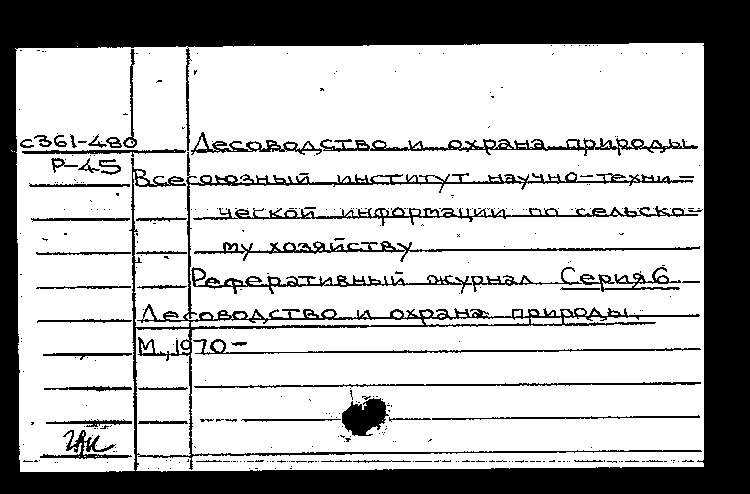 с361-480 Лесоводство и охрана природы
Р-45
Всесоюзный институт научно-техни=
ческой информации по сельско=
му хозяйству
Реферативный журнал. Серия 6
Лесоводство и охрана природы.
М., 1970-